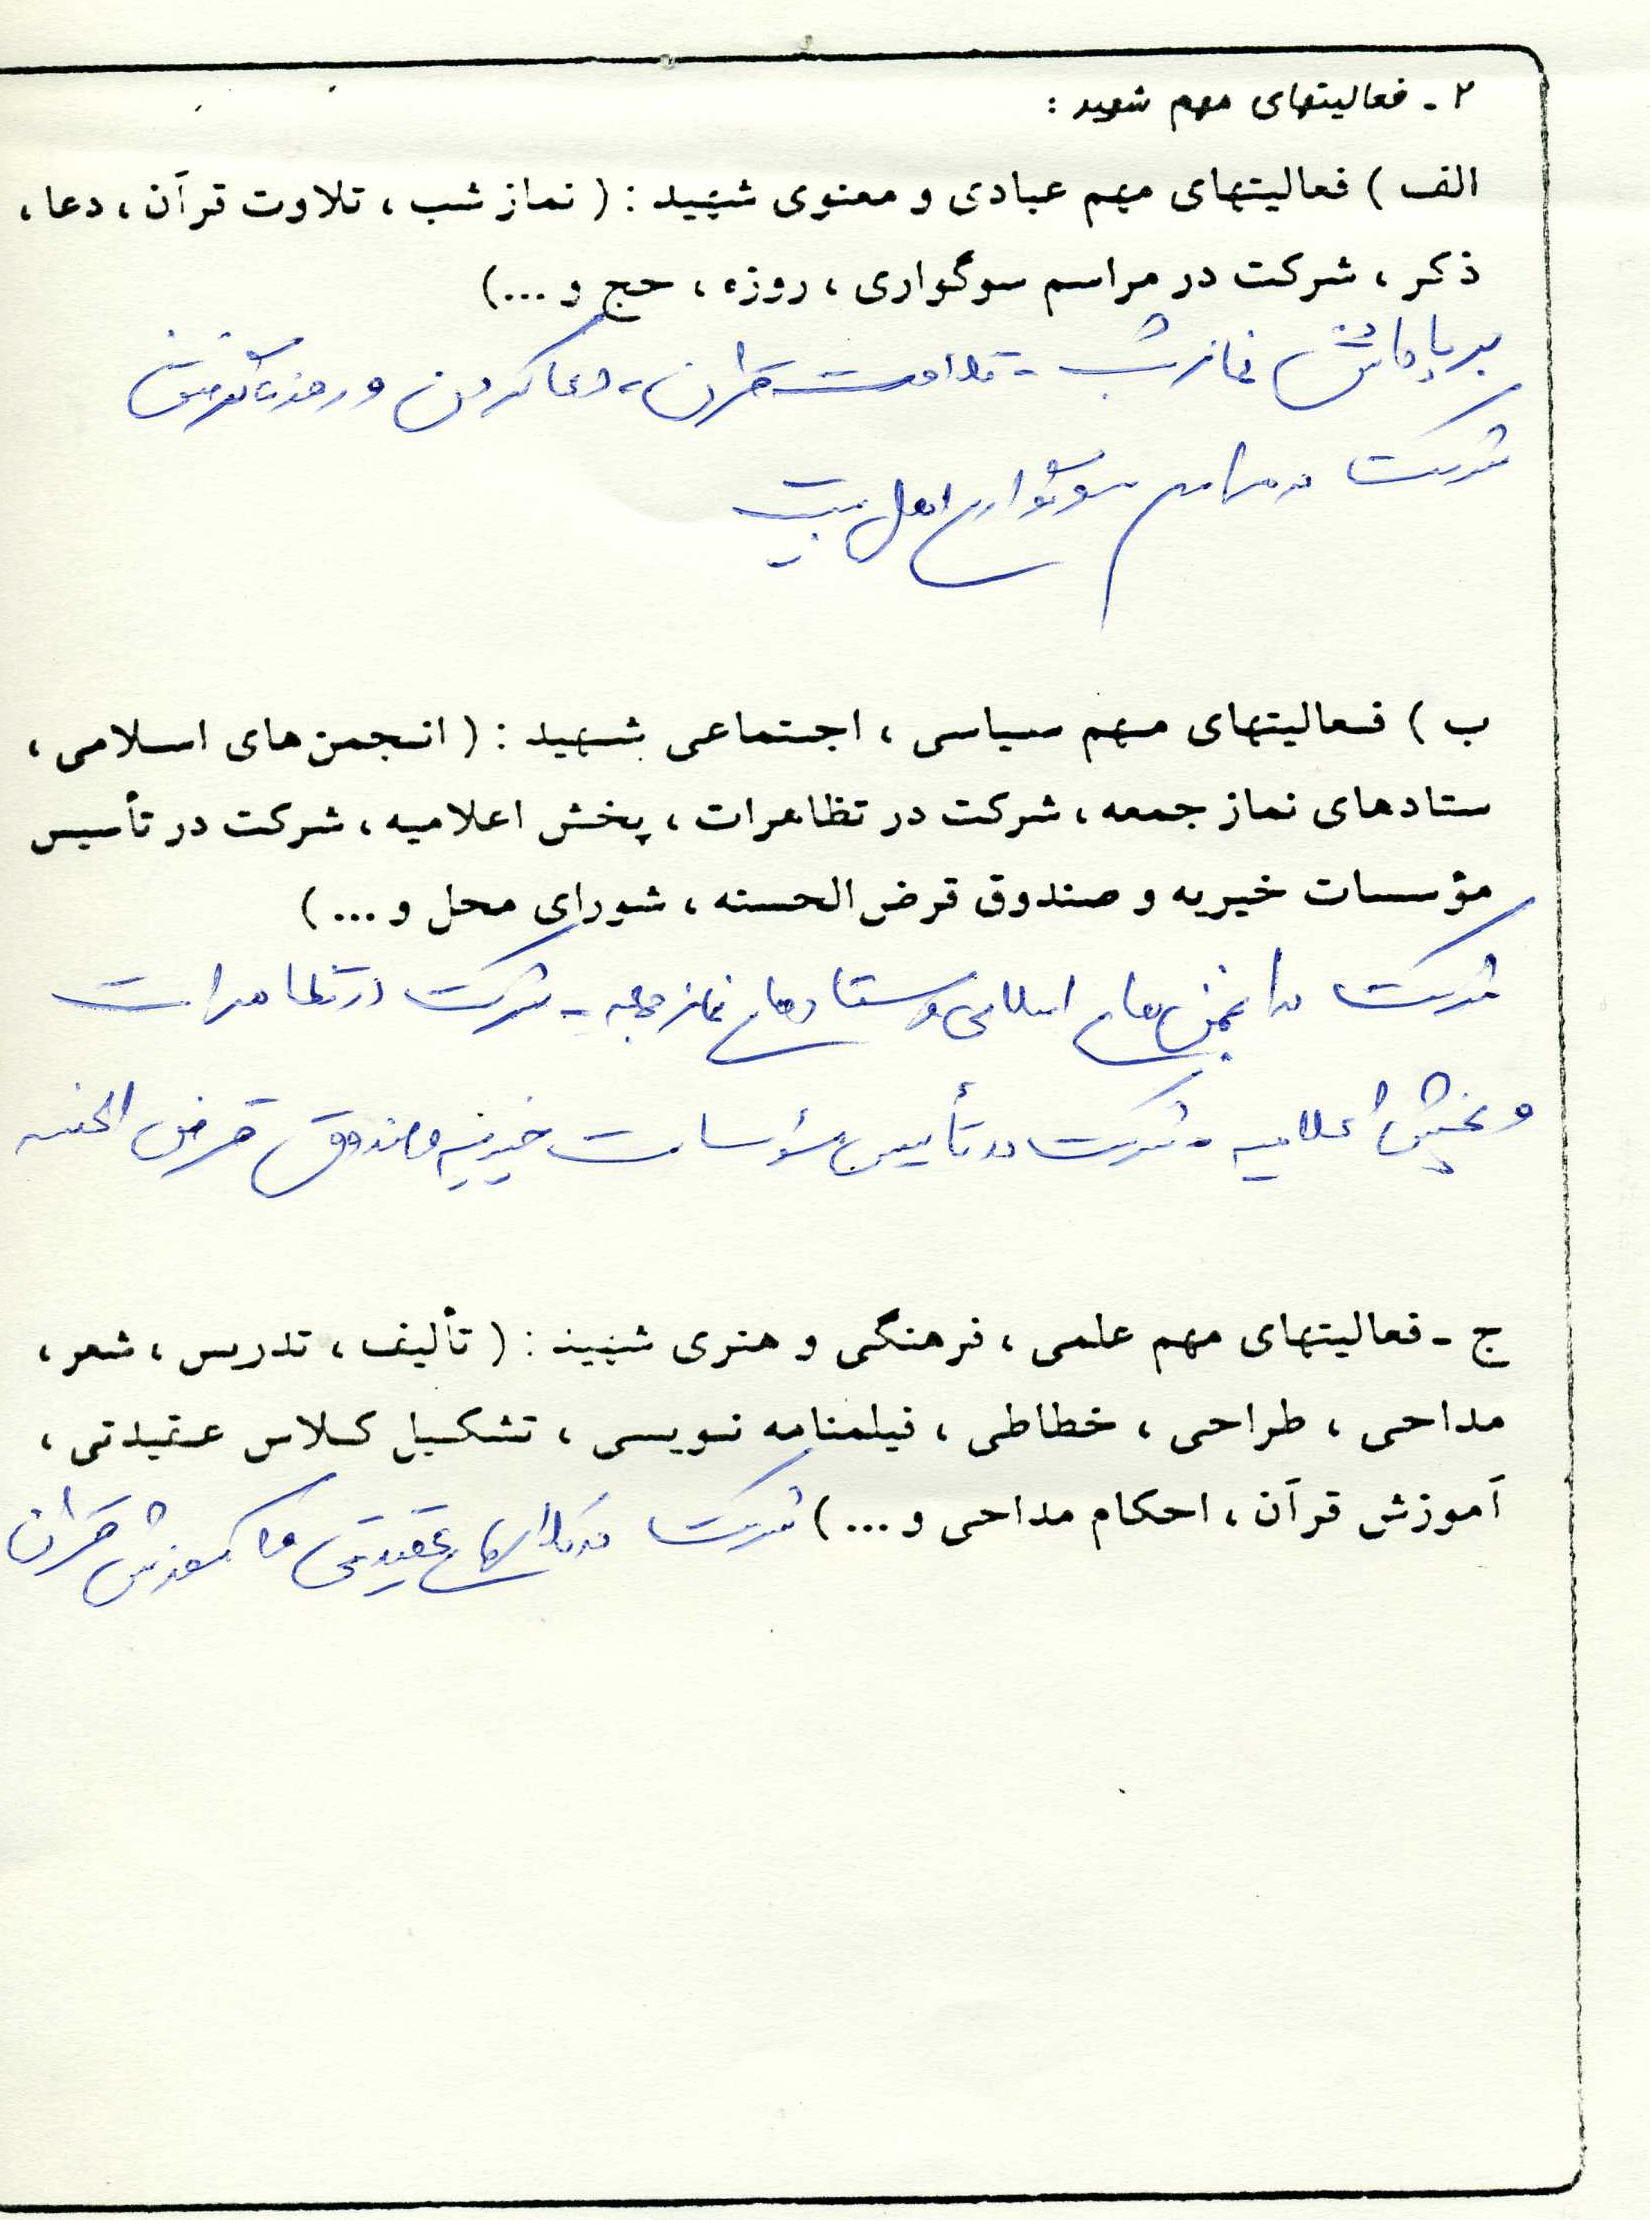 ۲ - فعالیتهای مهم شهید :
الف ) فعالیتهای مهم عبادی و معنوی شهید : ( نماز شب ، تلاوت قرآن ، دعا ،
ذکر ، شرکت در مراسم سوگواری ، روزه ، حج و ...)
برپاداشتن نماز شب - تلاوت قرآن - دعا کردن و روزه گرفتن
شرکت در مراسم سوگواری اهل بیت
ب ) فعالیتهای مهم سیاسی ، اجتماعی شهید : ( انجمن های اسلامی ،
ستادهای نماز جمعه ، شرکت در تظاهرات ، پخش اعلامیه ، شرکت در تأسیس
مؤسسات خیریه و صندوق قرض الحسنه ، شورای محل و ... )
شرکت در انجمن های اسلامی و ستادهای نماز جمعه - شرکت در تظاهرات
و پخش اعلامیه و شرکت در تأسیس مؤسسات خیریه و صندوق قرض الحسنه
ج - فعالیتهای مهم علمی ، فرهنگی و هنری شهید : ( تألیف ، تدریس ، شعر ،
مداحی ، طراحی ، خطاطی ، فیلمنامه نویسی ، تشکیل کلاس عقیدتی ،
آموزش قرآن ، احکام مداحی و ... ) شرکت در کلاسهای عقیدتی و آموزش قرآن